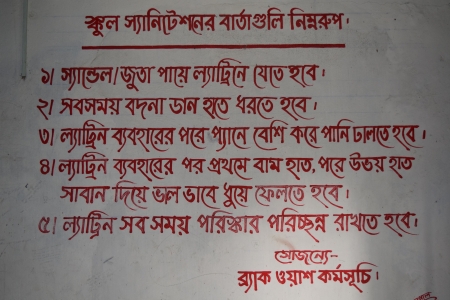 স্কুল স্যানিটেশনের বার্তাগুলি নিম্নরুপ।
১। স্যান্ডেল/জুতা পায়ে ল্যাট্রিনে যেতে হবে।
২। সবসময় বদনা ডান হাতে ধরতে হবে।
৩। ল্যাট্রিন ব্যবহারের পরে প্যানে বেশি করে পানি ঢালতে হবে।
৪। ল্যাট্রিন ব্যবহারের পর প্রথমে বাম হাত, পরে উভয় হাত
সাবান দিয়ে ভাল ভাবে ধুয়ে ফেলতে হবে।
৫। ল্যাট্রিন সব সময় পরিস্কার পরিচ্ছন্ন রাখতে হবে।
সৌজন্যে-
ব্র্যাক ওয়াশ কর্মসূচি।